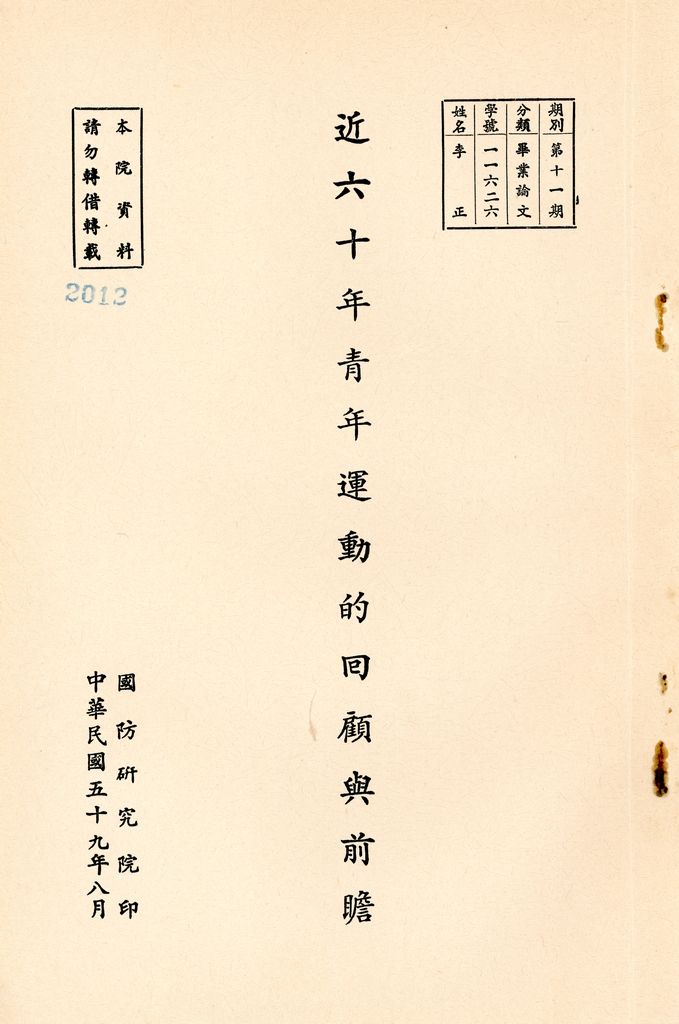 期別 第十一期
分類 畢業論文
學號 一一六二六
姓名 李正
近六十年青年運動的回顧與前瞻
本院資料
請勿轉借轉載
2012
國防研究院印
中華民國五十九年八月